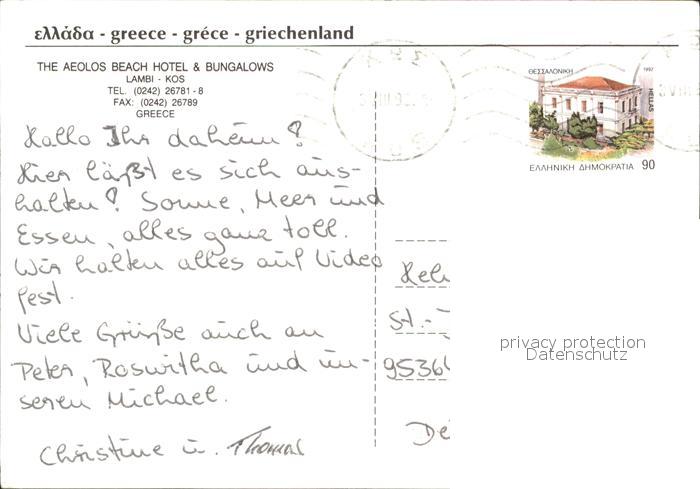 ελλάδα - greece - gréce - griechenland
THE AEOLOS BEACH HOTEL & BUNGALOWS
LAMBI - KOS
TEL. (0242) 26781 - 8
FAX: (0242) 26789
GREECE
ΘΕΣΣΑΛΟΝΙΚΗ
1992
HELLAS
ΕΛΛΗΝΙΚΗ ΔΗΜΟΚΡΑΤΙΑ 90
Hallo Ihr daheim!
Hier läßt es sich aus-
halten! Sonne, Meer und
Essen, alles ganz toll.
Wir halten alles auf Video
fest.
Viele Grüße auch an
Peter, Roswitha und un-
seren Michael.
Christine u. Thomas
St.-
privacy protection
Datenschutz